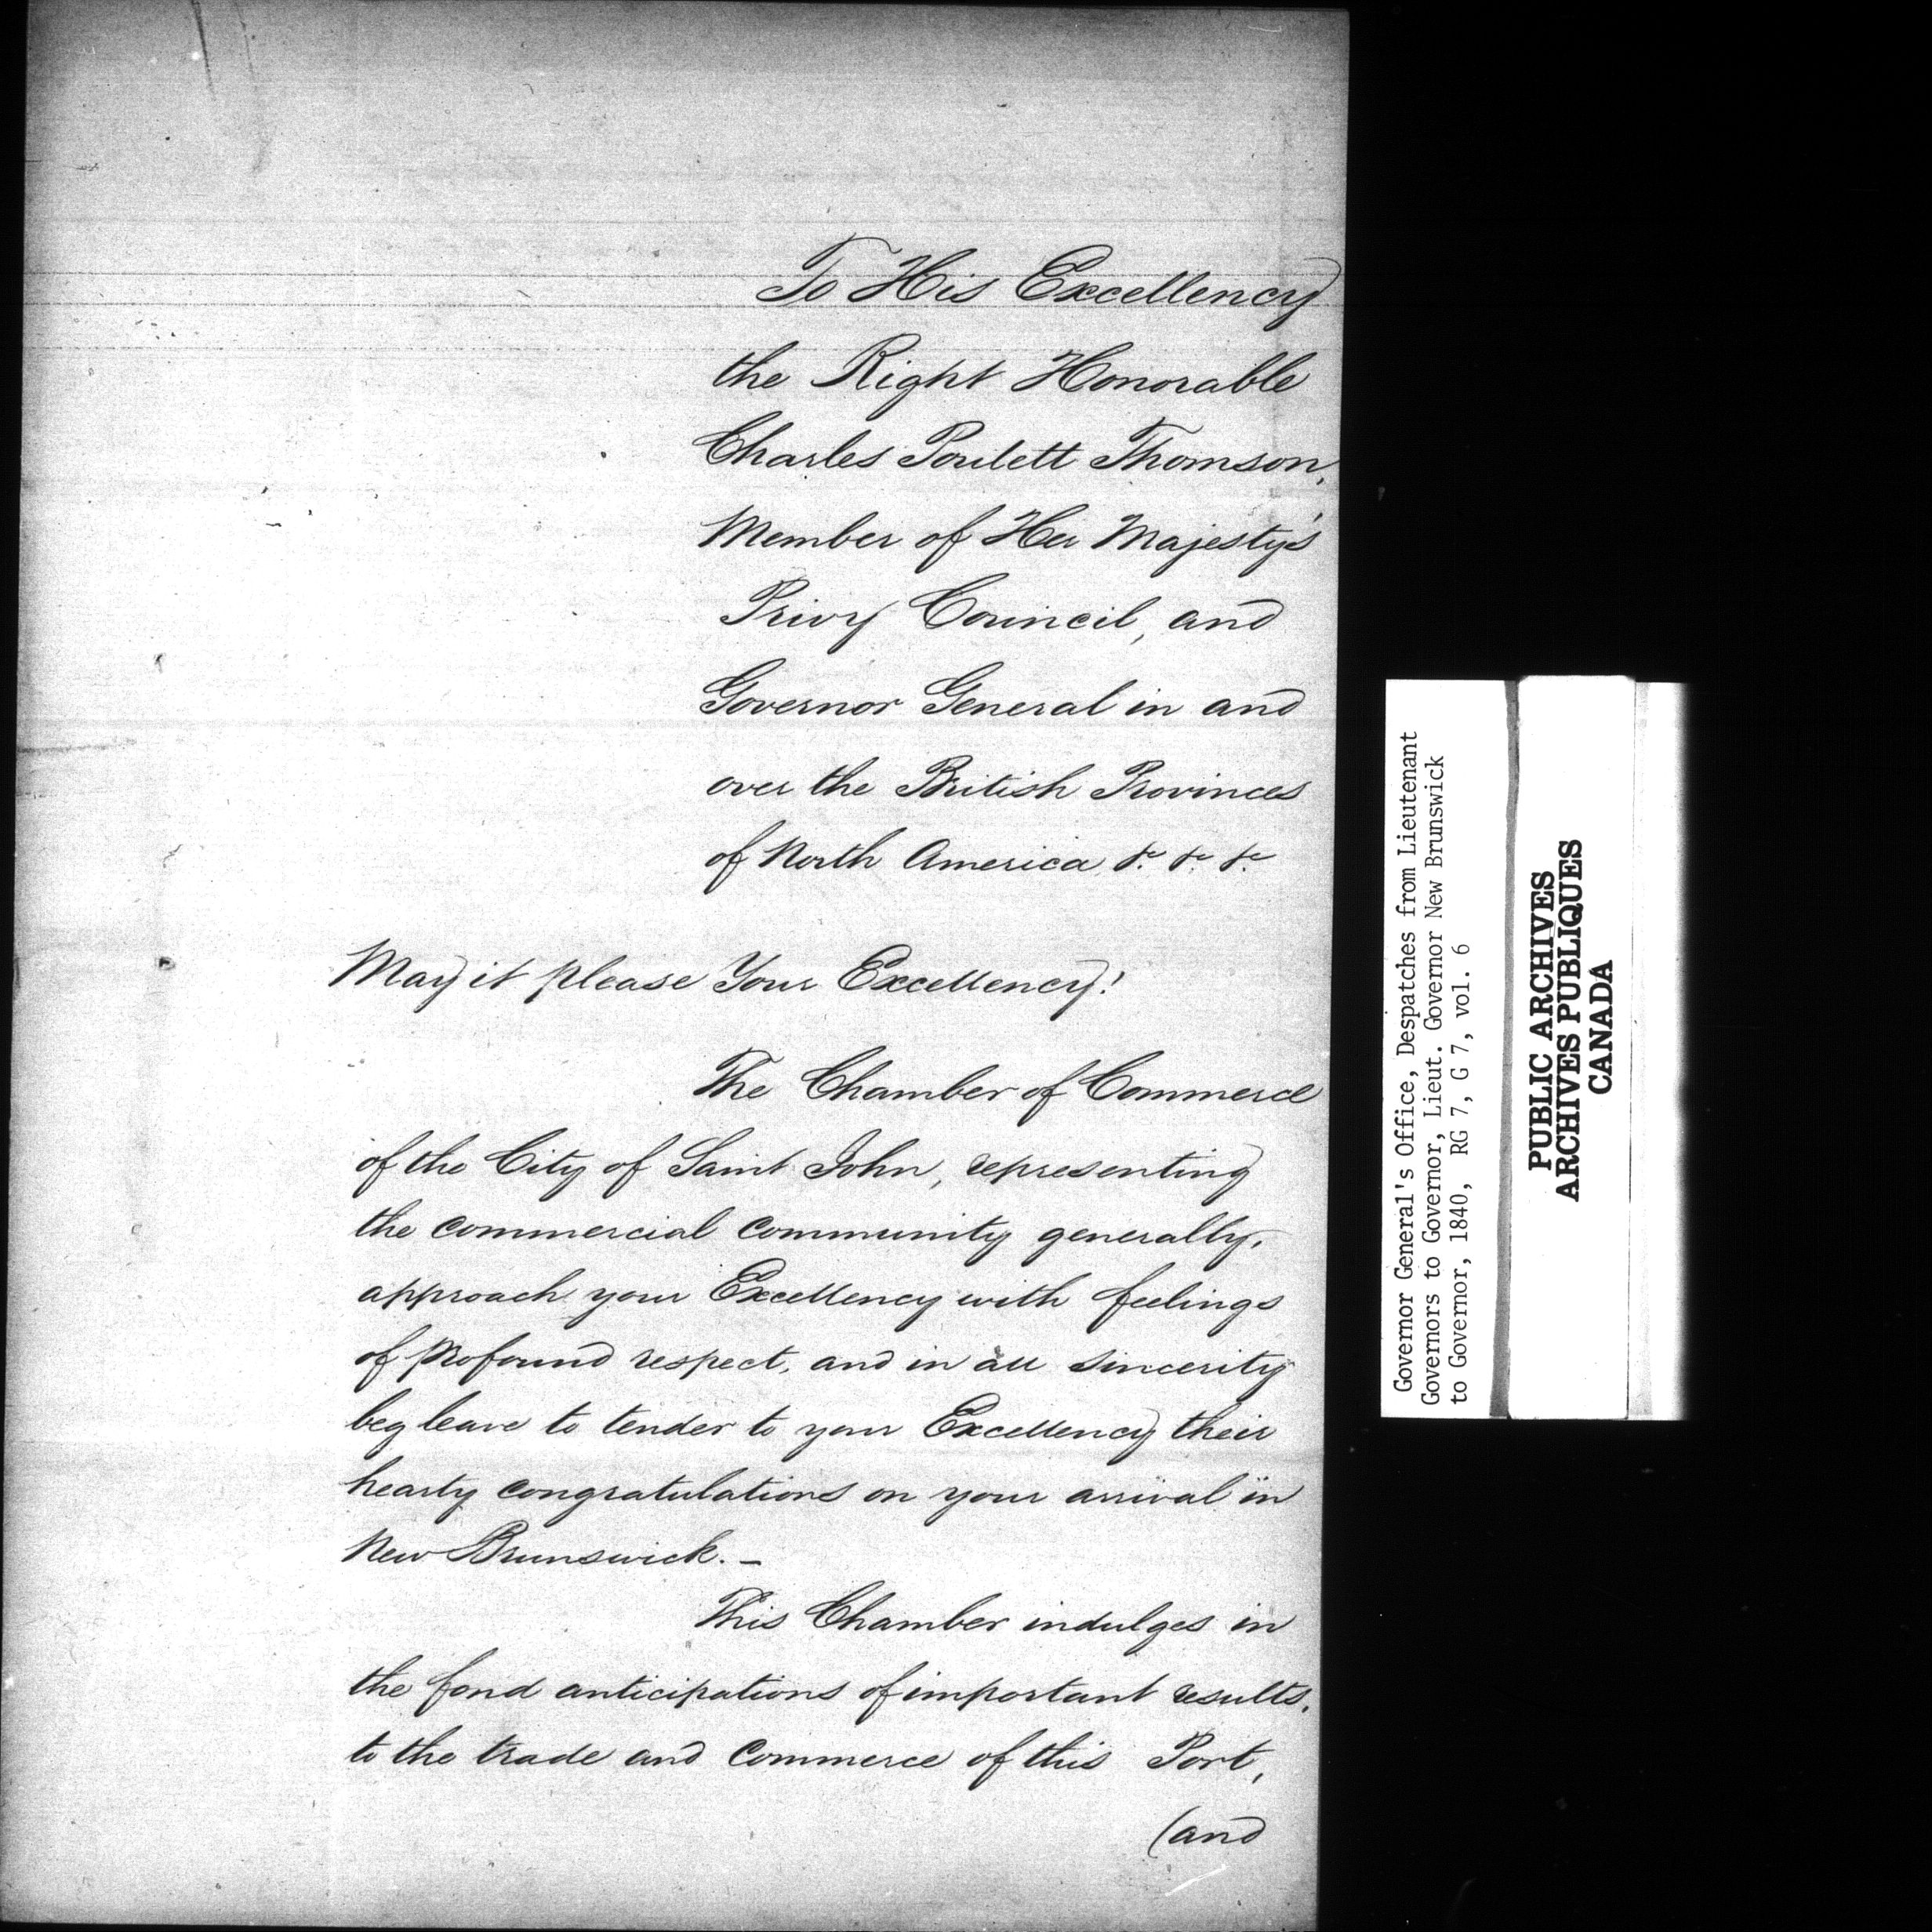 To His Excellency
the Right Honorable
Charles Poulett Thomson,
Member of Her Majesty's
Privy Council, and
Governor General in and
over the British Provinces
of North America &c. &c. &c.
May it please Your Excellency!
The Chamber of Commerce
of the City of Saint John, representing
the commercial community generally,
approach your Excellency with feelings
of profound respect, and in all sincerity
beg leave to tender to your Excellency their
hearty congratulations on your arrival in
New Brunswick. –
This Chamber indulges in
the fond anticipations of important results,
to the trade and commerce of this Port,
(and
Governor General's Office, Despatches from Lieutenant
Governors to Governor, Lieut. Governor New Brunswick
to Governor, 1840, RG 7, G 7, vol. 6
PUBLIC ARCHIVES
ARCHIVES PUBLIQUES
CANADA